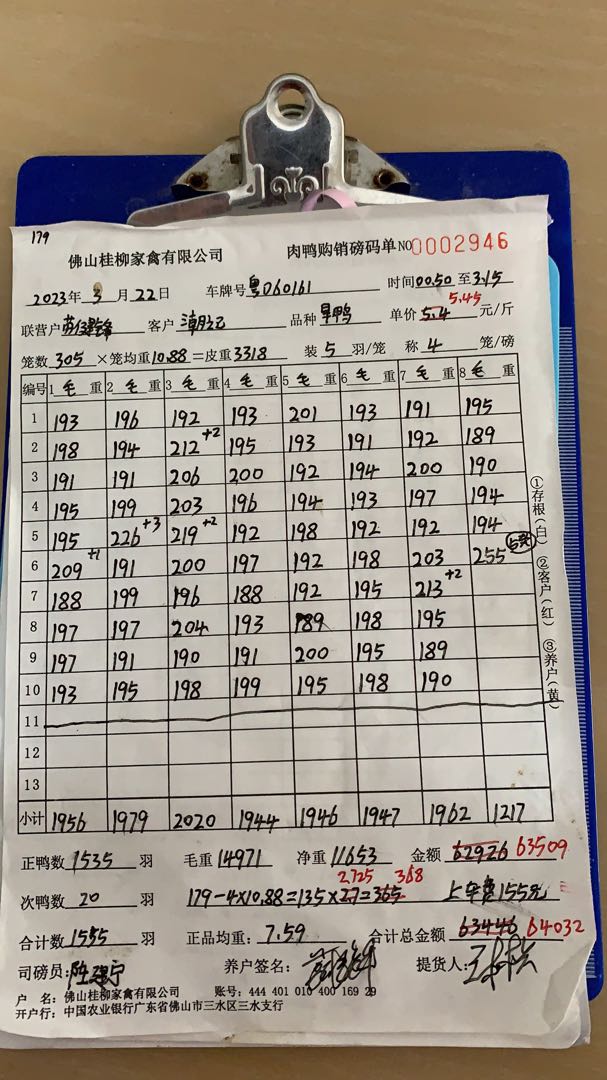 179
佛山桂柳家禽有限公司 肉鸭购销磅码单 NO 0002946
2023年 3月 22日 车牌号 粤D60161 时间 00.50 至 3.15
5.45
联营户 客户 品种 旱鸭 单价 5.4 元/斤
笼数 305 ×笼均重 10.88 =皮重 3318 装 5 羽/笼 称 4 笼/磅
编号 1 毛 重 2 毛 重 3 毛 重 4 毛 重 5 毛 重 6 毛 重 7 毛 重 8 毛 重
1 193 196 192 193 201 193 191 195
2 198 194 212 +2 195 193 191 192 189
3 191 191 206 200 192 194 200 190
4 195 199 203 196 194 193 197 194
5 195 226 +3 219 +2 192 198 192 192 194
6 209 +1 191 200 197 192 198 203 255
7 188 199 196 188 192 195 213 +2
8 197 197 204 193 189 198 195
9 197 191 190 191 200 195 189
10 193 195 198 199 195 198 190
11
12
13
小计 1956 1979 2020 1944 1946 1947 1962 1217
①存根(白) ②客户(红) ③养户(黄)
正鸭数 1535 羽 毛重 14971 净重 11653 金额 62926 63509
2.725 368
次鸭数 20 羽 179-4×10.88=135×2.7=365 上车费155元
合计数 1555 羽 正品均重: 7.59 合计总金额 63446 64032
司磅员: 养户签名: 提货人:
户 名: 佛山桂柳家禽有限公司 账号: 444 401 010 400 169 29
开户行: 中国农业银行广东省佛山市三水区三水支行